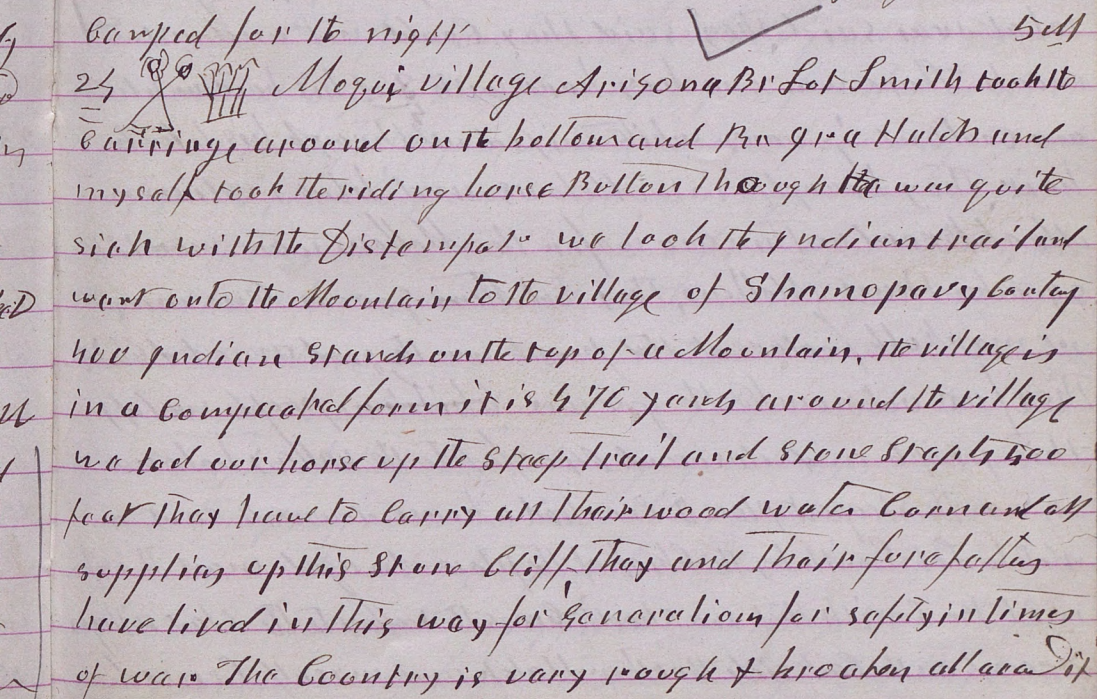 Camped for the night 5 M
24 Moqui village Arizona Br Lot Smith took the
Carriage around on the bottom and Br Ira Hatch and
myself took the riding horse Button Though He was quite
sick with the Distemper we took the Indian trail and
went onto the Mountain to the village of Shamopavy Contay
400 Indian Stands on the top of a Mountain, the village is
in a Compacted form it is 470 yards around the village
we led our horse up the Steep Trail and Stone Steps 500
feet They have to Carry all Their wood water Corn and all
supplies up this Stone Cliff, They and Their forefathers
have lived in this way for Generations for safty in times
of war. The Country is very rough & broaken all are